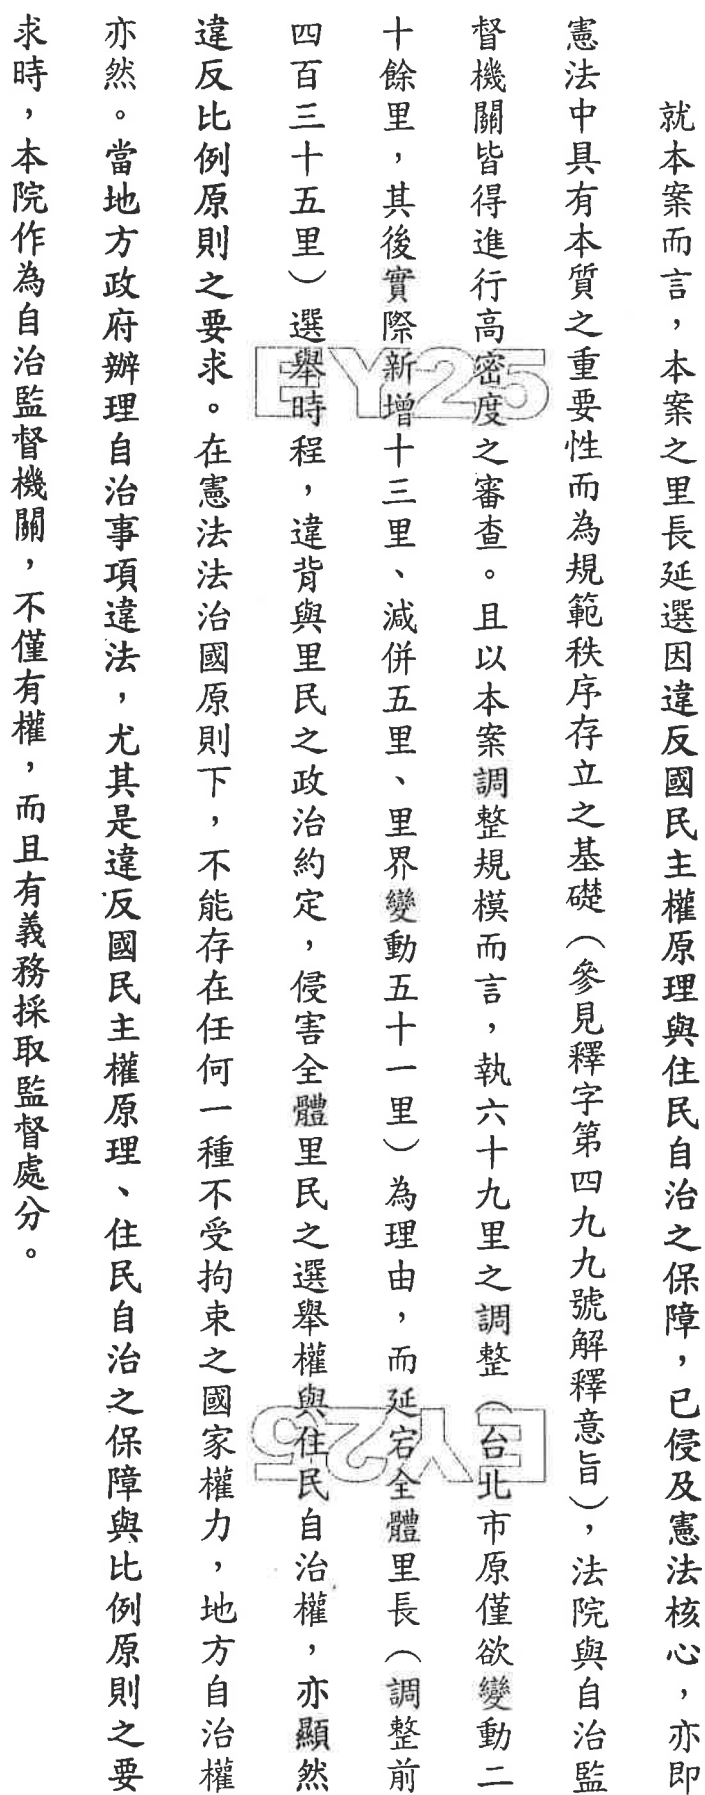 就本案而言，本案之里長延選因違反國民主權原理與住民自治之保障，已侵及憲法核心，亦即
憲法中具有本質之重要性而為規範秩序存立之基礎（參見釋字第四九九號解釋意旨），法院與自治監
督機關皆得進行高密度之審查。且以本案調整規模而言，執六十九里之調整（台北市原僅欲變動二
十餘里，其後實際新增十三里、減併五里、里界變動五十一里）為理由，而延宕全體里長（調整前
四百三十五里）選舉時程，違背與里民之政治約定，侵害全體里民之選舉權與住民自治權，亦顯然
違反比例原則之要求。在憲法法治國原則下，不能存在任何一種不受拘束之國家權力，地方自治權
亦然。當地方政府辦理自治事項違法，尤其是違反國民主權原理、住民自治之保障與比例原則之要
求時，本院作為自治監督機關，不僅有權，而且有義務採取監督處分。
EY25
EY25